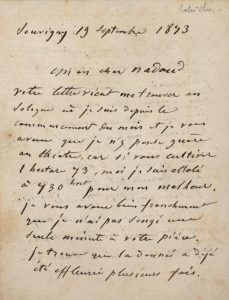 Labiche
Souvigny 19 septembre 1873
Mon cher Nadaud
votre lettre vient me trouver en
Sologne où je suis depuis le
commencement du mois et je vous
avoue que je n'y pense guère
au théâtre, car si vous cultivez
1 hectare 73, moi je suis attelé
à 930 pour mon malheur.
je vous avoue bien franchement
que je n'ai pas songé une
seule minute à votre pièce.
je trouve que la donnée a déjà
été effleurée plusieurs fois.